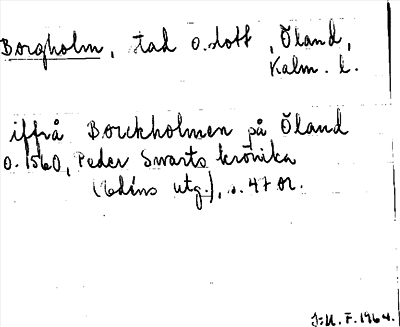 Borgholm, tad o. slott, Öland,
Kalm. l.
iffrå Borckholmen på Öland
o. 1560, Peder Swarts krönika
(Edéns utg.), s. 47 or.
F. 1964.